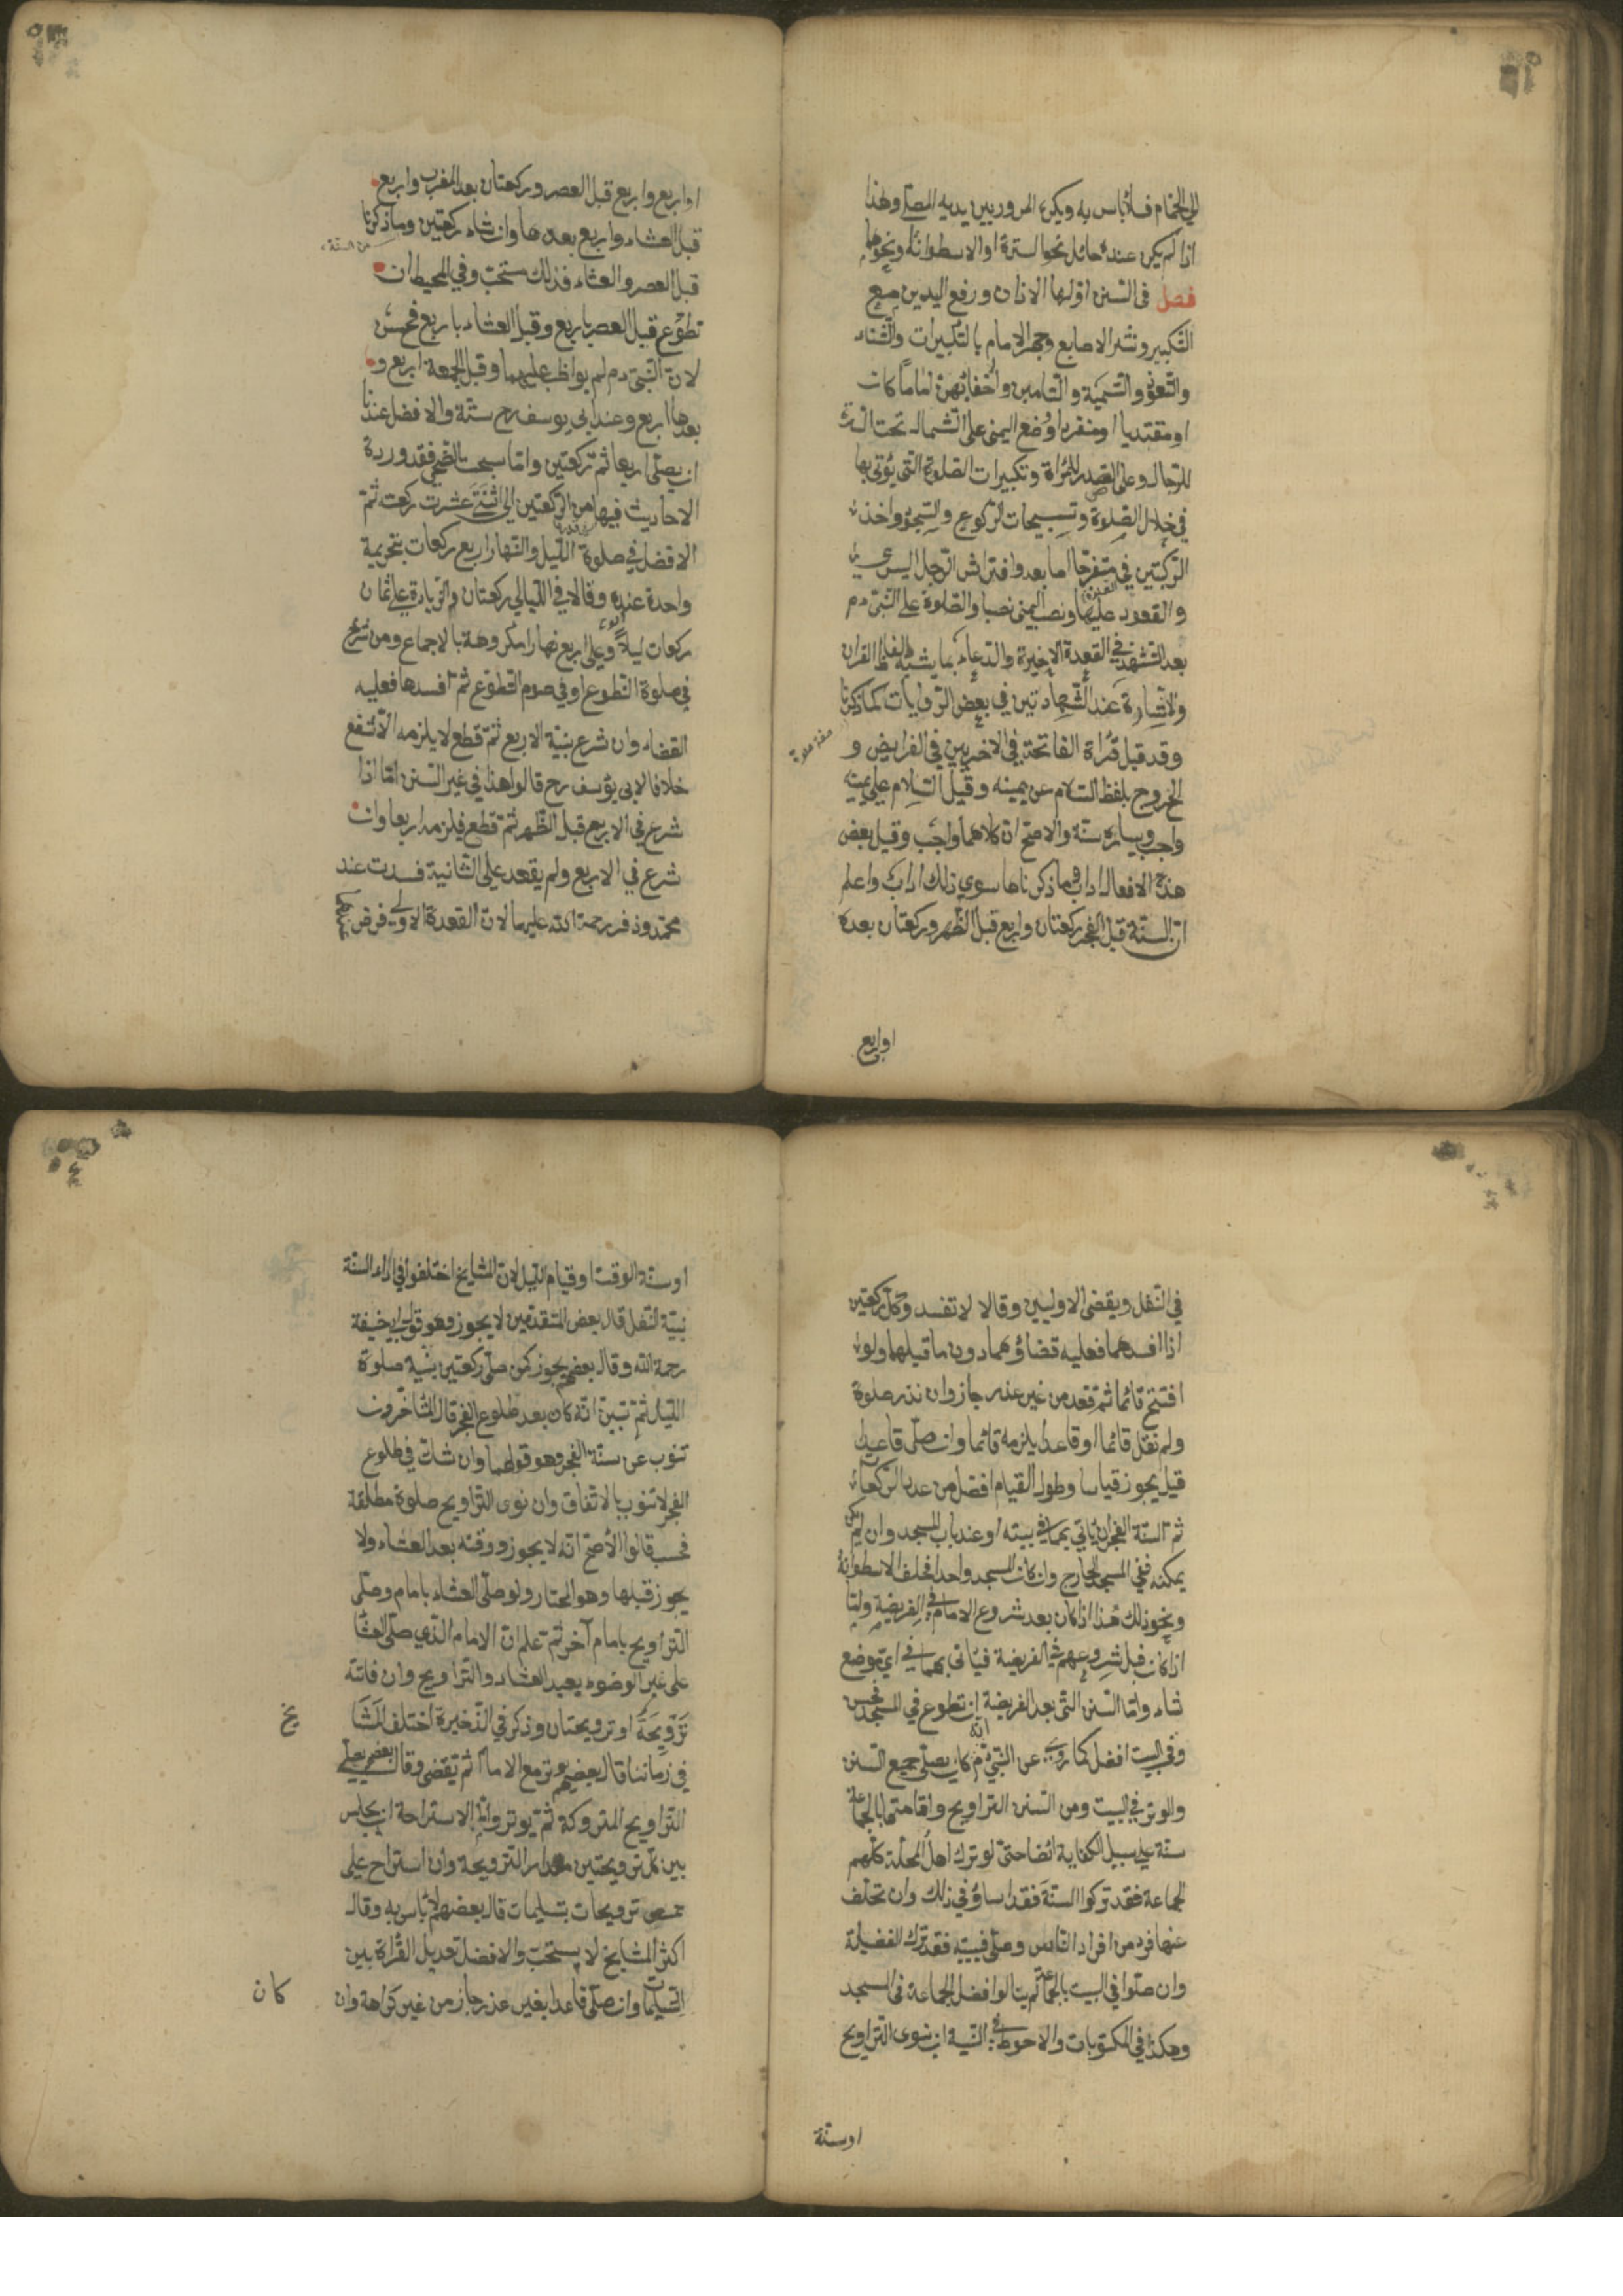 الي الحمام فلا باس به ويكره المرور بين يديه المصلي وهذا
اذا لم يكن عنده حائل نحو السترة او الاسطوانة ونحوها
فصل في السنن اولها الاذان ورفع اليدين مع
التكبير ونشر الاصابع وجهر الامام بالتكبيرات والثناء
والتعوذ والتسمية والتامين واخفائهن اماما كان
او مقتديا او منفردا ووضع اليمنى على الشمال تحت السرة
للرجال وعلى الصدر للمراة وتكبيرات الصلوة التي يؤتى بها
في خلال الصلوة وتسبيحات الركوع والسجود واخذ
الركبتين في متفرجا اصابعه وافتراش الرجل اليسرى
والقعود عليها ونصب اليمنى نصبا والصلوة على النبي عم
بعد التشهد في القعدة الاخيرة والدعاء بما يشبه الفاظ القران
والاشارة عند الشهادتين في بعض الروايات كما ذكرنا
وقد قيل قراة الفاتحة في الاخريين في الفرايض و
الخروج بلفظ السلام عن يمينه وقيل السلام على يمينه
واجب ويساره سنة والاصح ان كلاهما واجب وقيل بعض
هذه الافعال اداب وما ذكرناها سوى ذلك اداب واعلم
ان السنة قبل الفجر ركعتان واربع قبل الظهر وركعتان بعده
او اربع
او اربع واربع قبل العصر وركعتان بعد المغرب واربع
قبل العشاء واربع بعدها وان شاء ركعتين وما ذكرنا
من السنة
قبل العصر والعشاء فذلك مستحب وفي المحيط ان
تطوع قبل العصر باربع وقبل العشاء باربع فحسن
لان النبي عم لم يواظب عليهما وقبل الجمعة اربع و
بعدها اربع وعند ابي يوسف رح ستة والافضل عندنا
ان يصلي اربعا ثم ركعتين واما سبحت الضحى فقد وردة
الاحاديث فيها من الركعتين الى اثنتي عشرت ركعت ثم
الافضل في صلوة الليل والنهار اربع ركعات بتحريمة
واحدة عنده وقالا في الليالي ركعتان والزيادة على ثمان
ركعات ليلا وعلى اربع نهارا مكروهة بالاجماع ومن شرع
في صلوة التطوع او في صوم التطوع ثم افسدها فعليه
القضاء وان شرع بنية الاربع ثم قطع لا يلزمه الا شفع
خلافا لابي يوسف رح قالوا هذا في غير السنن اما اذا
شرع في الاربع قبل الظهر ثم قطع فيلزمه اربعا وان
شرع في الاربع ولم يقعد على الثانية فسدت عند
محمد وزفر رحمة الله عليهما لان القعدة الاولى فرض عندهما
في النفل ويقضى الاوليين وقالا لا تفسد وكل ركعتين
اذا افسدهما فعليه قضاؤهما دون ما قبلهما ولو
افتتح قائما ثم قعد من غير عذر جاز وان نذر صلوة
ولم نقل قائما او قاعدا يلزمه قائما وان صلى قاعدا
قيل يجوز قياسا وطول القيام افضل من عدد الركعات
ثم السنة الفجر ان ياتي بهما في بيته او عند باب المسجد وان لم يكن
يمكنه ففي المسجد الخارج وان كان المسجد واحدا فخلف الاسطوانة
ونحو ذلك هذا اذا كان بعد شروع الامام في الفريضة واما
اذا كان قبل شروعهم في الفريضة فياتي بهما في اي موضع
شاء واما السنن التي بعد الفريضة ان تطوع في المسجد فحسن
وفي البيت افضل كما روي عن النبي عم انه كان يصلي جميع السنن
والوتر في البيت ومن السنن التراويح واقامتها بالجماعة
سنة على سبيل الكفاية ايضا حتى لو ترك اهل المحلة كلهم
الجماعة فقد تركوا السنة فقد اساؤ في ذلك وان تخلف
عنها فرد من افراد الناس وصلى في بيته فقد ترك الفضيلة
وان صلوا في البيت بالجماعة لم ينالوا فضل الجماعة في المسجد
وهكذا في المكتوبات والاحوط في النية ان ينوى التراويح
او سنة
او سنة الوقت او قيام الليل لان المشايخ اختلفوا في اداء السنة
بنية النفل قال بعض المتقدمين لا يجوز وهو قول ابي حنيفة
رحمة الله وقال بعضهم يجوز كمن صلى ركعتين بنية صلوة
الليل ثم تبين انه كان بعد طلوع الفجر قال المتاخرون
تنوب عن سنة الفجر وهو قولهما وان شك في طلوع
الفجر لا تنوب بالاتفاق وان نوى التراويح صلوة مطلقة
فحسب قالوا الاصح انه لا يجوز ووقته بعد العشاء ولا
يجوز قبلها وهو المختار ولو صلى العشاء بامام وصلى
التراويح بامام آخر ثم علم ان الامام الذي صلى العشا
على غير الوضوء يعيد العشاء والتراويح وان فاتته
ترويحة او ترويحتان وذكر في الذخيرة اختلف المشا
يخ
في زماننا قال بعضهم يوتر مع الامام ثم تقضى وقال بعضهم يصلي
التراويح المتروكة ثم يوتر وانما الاستراحة ان يجلس
بين كل ترويحتين مقدار الترويحة وان استراح على
خمس ترويحات بتسليمات قال بعضهم لا باس به وقال
اكثر المشايخ لا يستحب والافضل تعديل القراة بين
التسليمات وان صلى قاعدا بغير عذر جاز من غير كراهة وان
كان